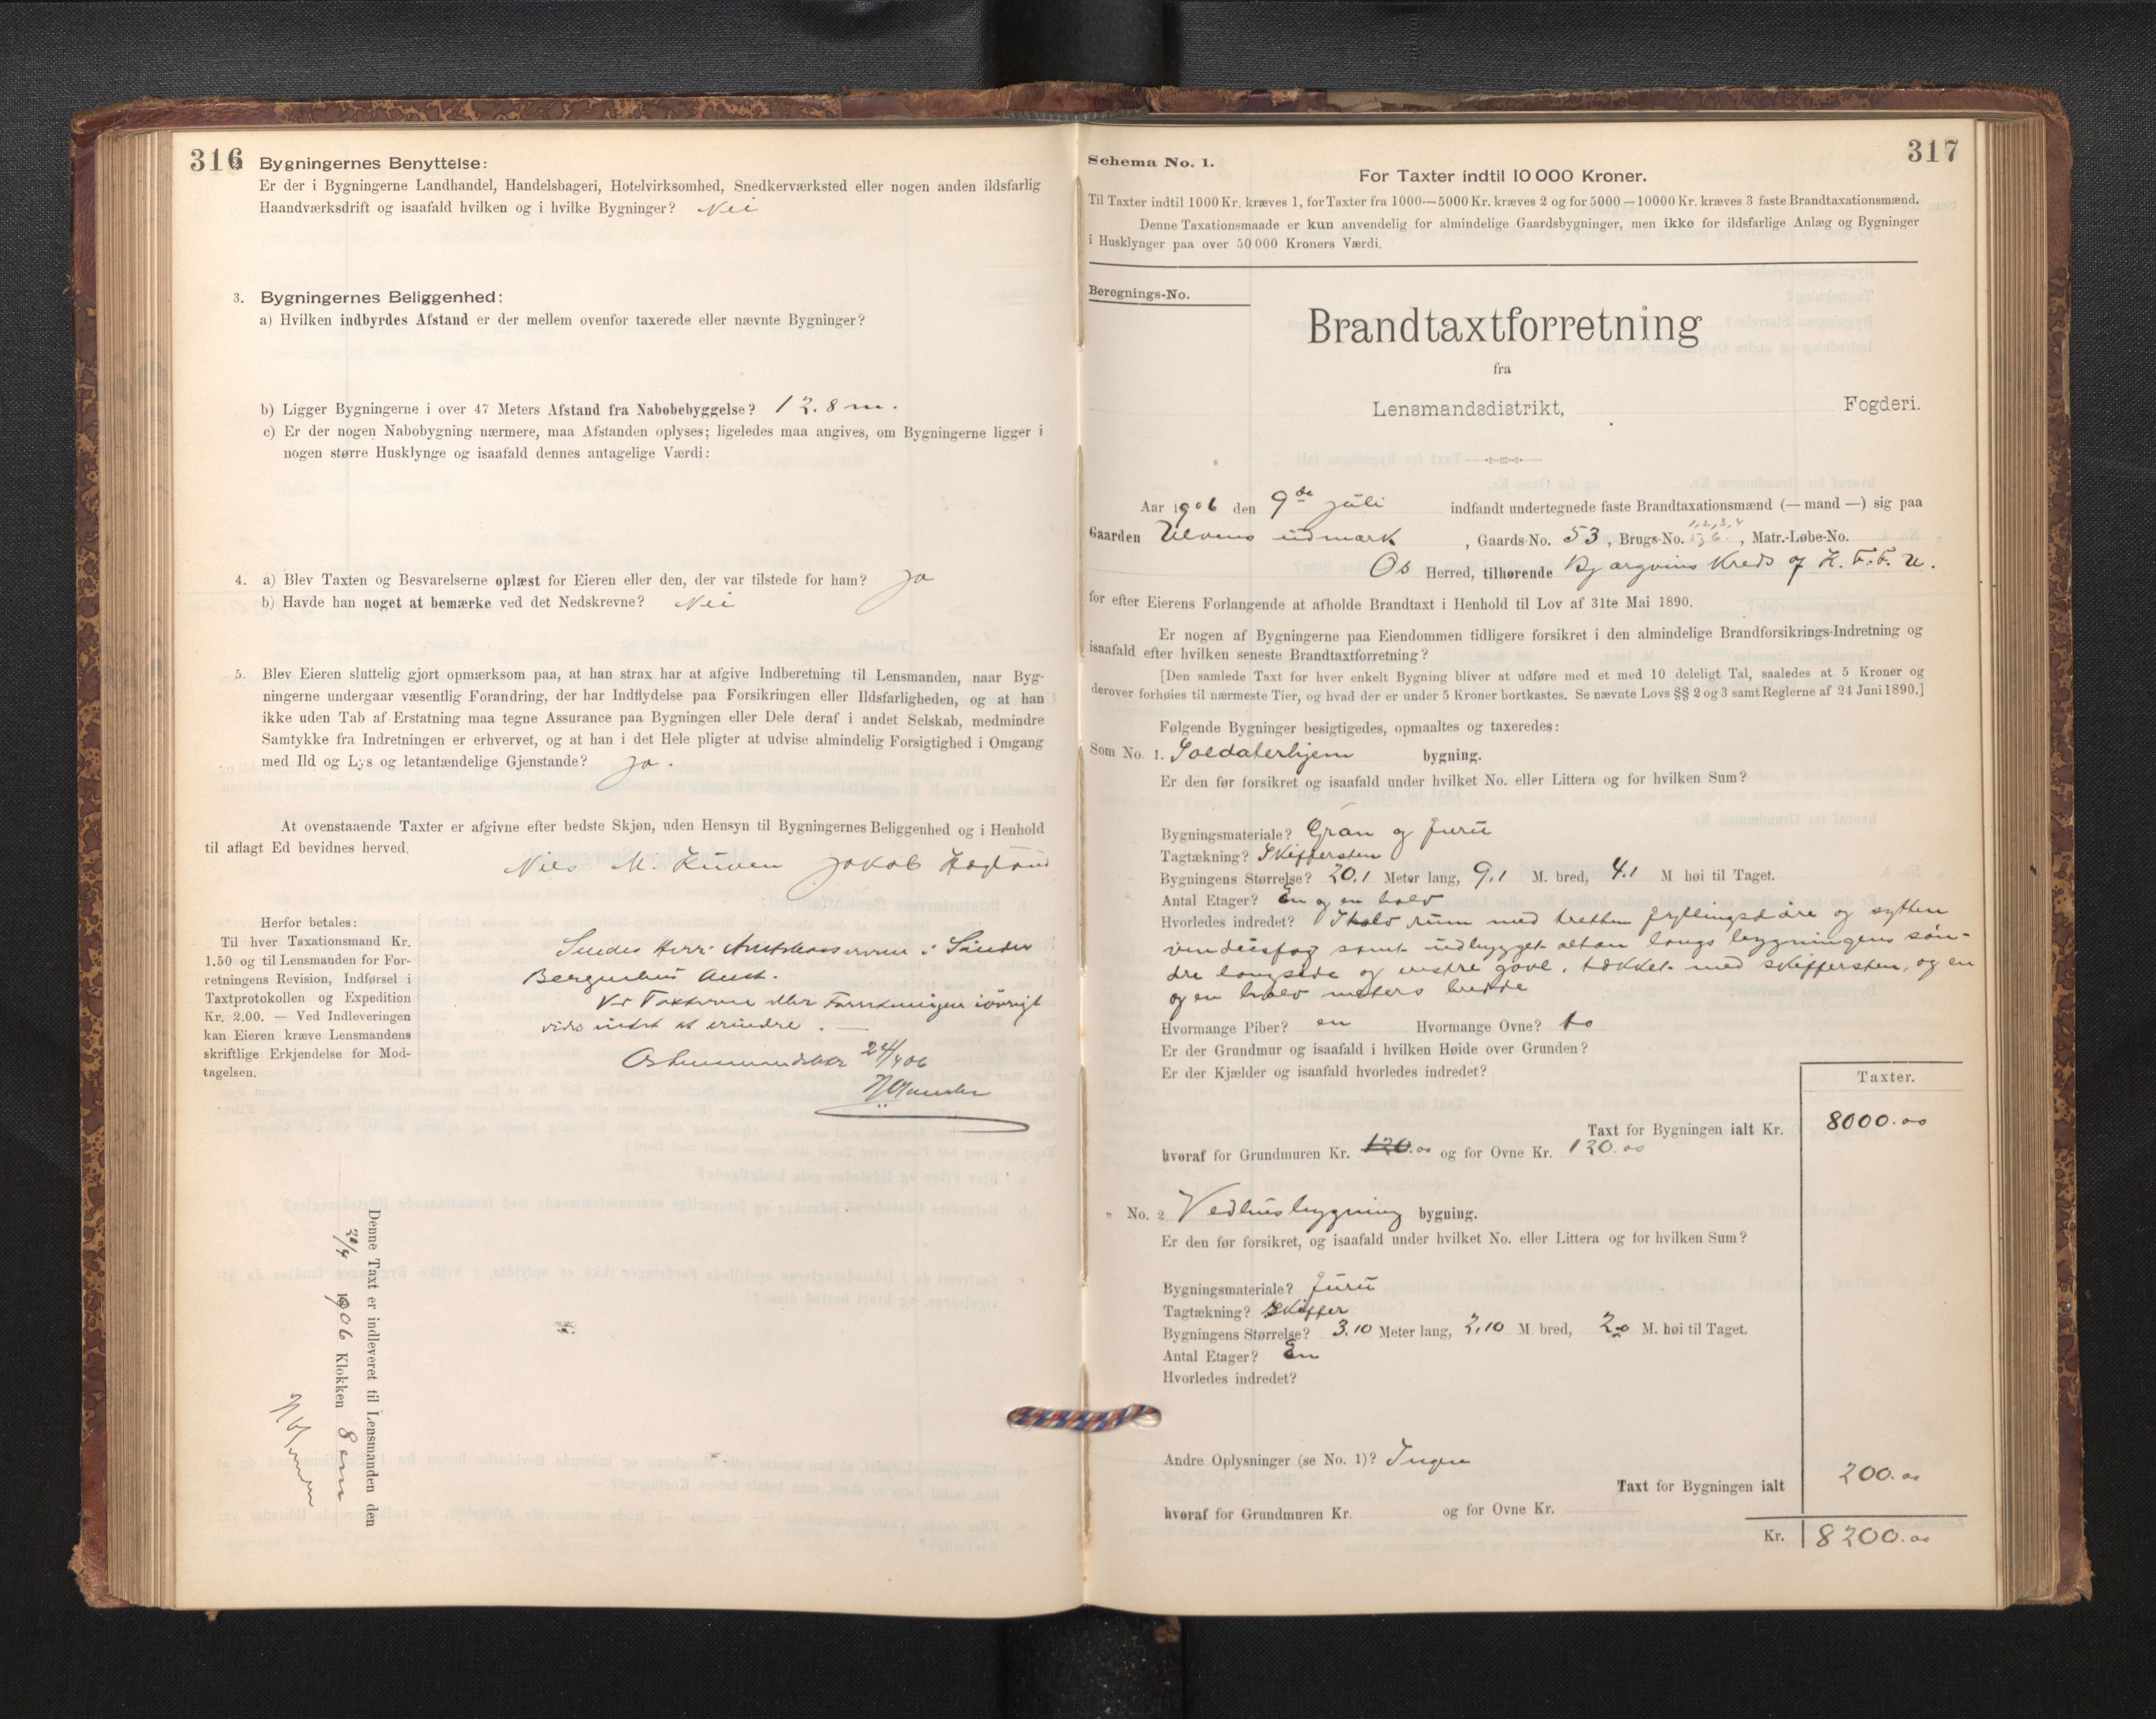 316
2. Bygningernes Benyttelse:
Er der i Bygningerne Landhandel, Handelsbageri, Hotelvirksomhed, Snedkerværksted eller nogen anden ildsfarlig
Haandværksdrift og isaafald hvilken og i hvilke Bygninger? Nei
3. Bygningernes Beliggenhed:
a) Hvilken indbyrdes Afstand er der mellem ovenfor taxerede eller nævnte Bygninger?
b) Ligger Bygningerne i over 47 Meters Afstand fra Nabobebyggelse? 12.8 m.
c) Er der nogen Nabobygning nærmere, maa Afstanden oplyses; ligeledes maa angives, om Bygningerne ligger i
nogen større Husklynge og isaafald dennes antagelige Værdi:
4. a) Blev Taxten og Besvarelserne oplæst for Eieren eller den, der var tilstede for ham? Ja
b) Havde han noget at bemærke ved det Nedskrevne? Nei
5. Blev Eieren sluttelig gjort opmærksom paa, at han strax har at afgive Indberetning til Lensmanden, naar Byg-
ningerne undergaar væsentlig Forandring, der har Indflydelse paa Forsikringen eller Ildsfarligheden, og at han
ikke uden Tab af Erstatning maa tegne Assurance paa Bygningen eller Dele deraf i andet Selskab, medmindre
Samtykke fra Indretningen er erhvervet, og at han i det Hele pligter at udvise almindelig Forsigtighed i Omgang
med Ild og Lys og letantændelige Gjenstande? Ja.
At ovenstaaende Taxter er afgivne efter bedste Skjøn, uden Hensyn til Bygningernes Beliggenhed og i Henhold
til aflagt Ed bevidnes herved.
Niels M. Kuven Jakob
Herfor betales:
Til hver Taxationsmand Kr.
1.50 og til Lensmanden for For-
retningens Revision, Indførsel i
Taxtprotokollen og Expedition
Kr. 2.00. — Ved Indleveringen
kan Eieren kræve Lensmandens
skriftlige Erkjendelse for Mod-
tagelsen.
Sendes Herr Amtskassereren i Søndre
Bergenhus Amt.
Ved Taxterne eller Forretningen iøvrigt
vides intet at erindre. —
Os 24/7 06
Denne Taxt er indleveret til Lensmanden den
20/7 1906 Klokken 8 em
317
Schema No. 1.
For Taxter indtil 10 000 Kroner.
Til Taxter indtil 1000 Kr. kræves 1, for Taxter fra 1000—5000 Kr. kræves 2 og for 5000—10000 Kr. kræves 3 faste Brandtaxationsmænd.
Denne Taxationsmaade er kun anvendelig for almindelige Gaardsbygninger, men ikke for ildsfarlige Anlæg og Bygninger
i Husklynger paa over 50 000 Kroners Værdi.
Beregnings-No.
Brandtaxtforretning
fra
Lensmandsdistrikt, Fogderi.
Aar 1906 den 9de juli indfandt undertegnede faste Brandtaxationsmænd (— mand —) sig paa
Gaarden Ulvens udmark, Gaards-No. 53, Brugs-No. 1,2,3,4 5,6., Matr.-Løbe-No.
Os Herred, tilhørende Bjørgvins Kreds af K. F. F. U.
for efter Eierens Forlangende at afholde Brandtaxt i Henhold til Lov af 31te Mai 1890.
Er nogen af Bygningerne paa Eiendommen tidligere forsikret i den almindelige Brandforsikrings-Indretning og
isaafald efter hvilken seneste Brandtaxtforretning?
[Den samlede Taxt for hver enkelt Bygning bliver at udføre med et med 10 deleligt Tal, saaledes at 5 Kroner og
derover forhøies til nærmeste Tier, og hvad der er under 5 Kroner bortkastes. Se nævnte Lovs §§ 2 og 3 samt Reglerne af 24 Juni 1890.]
Følgende Bygninger besigtigedes, opmaaltes og taxeredes:
Som No. 1. Soldaterhjem bygning.
Er den før forsikret og isaafald under hvilket No. eller Littera og for hvilken Sum?
Bygningsmateriale? Gran og furu
Tagtækning? Skiffersten
Bygningens Størrelse? 20.1 Meter lang, 9.1 M. bred, 4.1 M. høi til Taget.
Antal Etager? En og en halv
Hvorledes indredet? I rum med tretten fyllingsdøre og sytten
vinduesfag samt udbygget altan langs bygningens søn-
dre langside og vestre gavl, tækket med skiffersten, og en
og en halv meters bredde
Hvormange Piber? en Hvormange Ovne? to
Er der Grundmur og isaafald i hvilken Høide over Grunden?
Er der Kjælder og isaafald hvorledes indredet?
Taxter.
Taxt for Bygningen ialt Kr. 8000.00
hvoraf for Grundmuren Kr. 120.00 og for Ovne Kr. 120.00
" No. 2 Vedhusbygning bygning.
Er den før forsikret, og isaafald under hvilket No. eller Littera og for hvilken Sum?
Bygningsmateriale? furu
Tagtækning? Skiffer
Bygningens Størrelse? 3.10 Meter lang, 2.10 M. bred, 2.0 M. høi til Taget.
Antal Etager? En
Hvorledes indredet?
Andre Oplysninger (se No. 1)? Ingen
Taxt for Bygningen ialt 200.00
hvoraf for Grundmuren Kr. og for Ovne Kr.
Kr. 8200.00